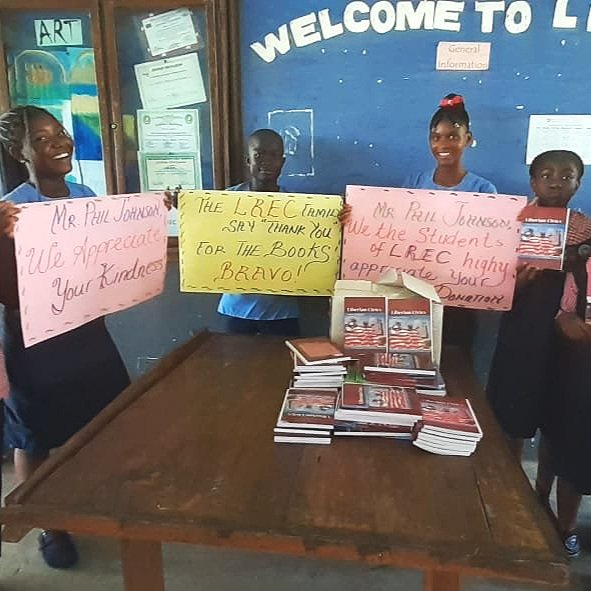 ART
WELCOME TO L
General
Information
Mr. Phil Johnson,
We Appreciate
Your Kindness
THE LREC FAMILY
SAY "THANK YOU
FOR THE BOOKS"
BRAVO!
Mr Phil Johnson,
We the Students
of LREC highy
appreciate your
Donation
Liberian Civics
Liberian Civics